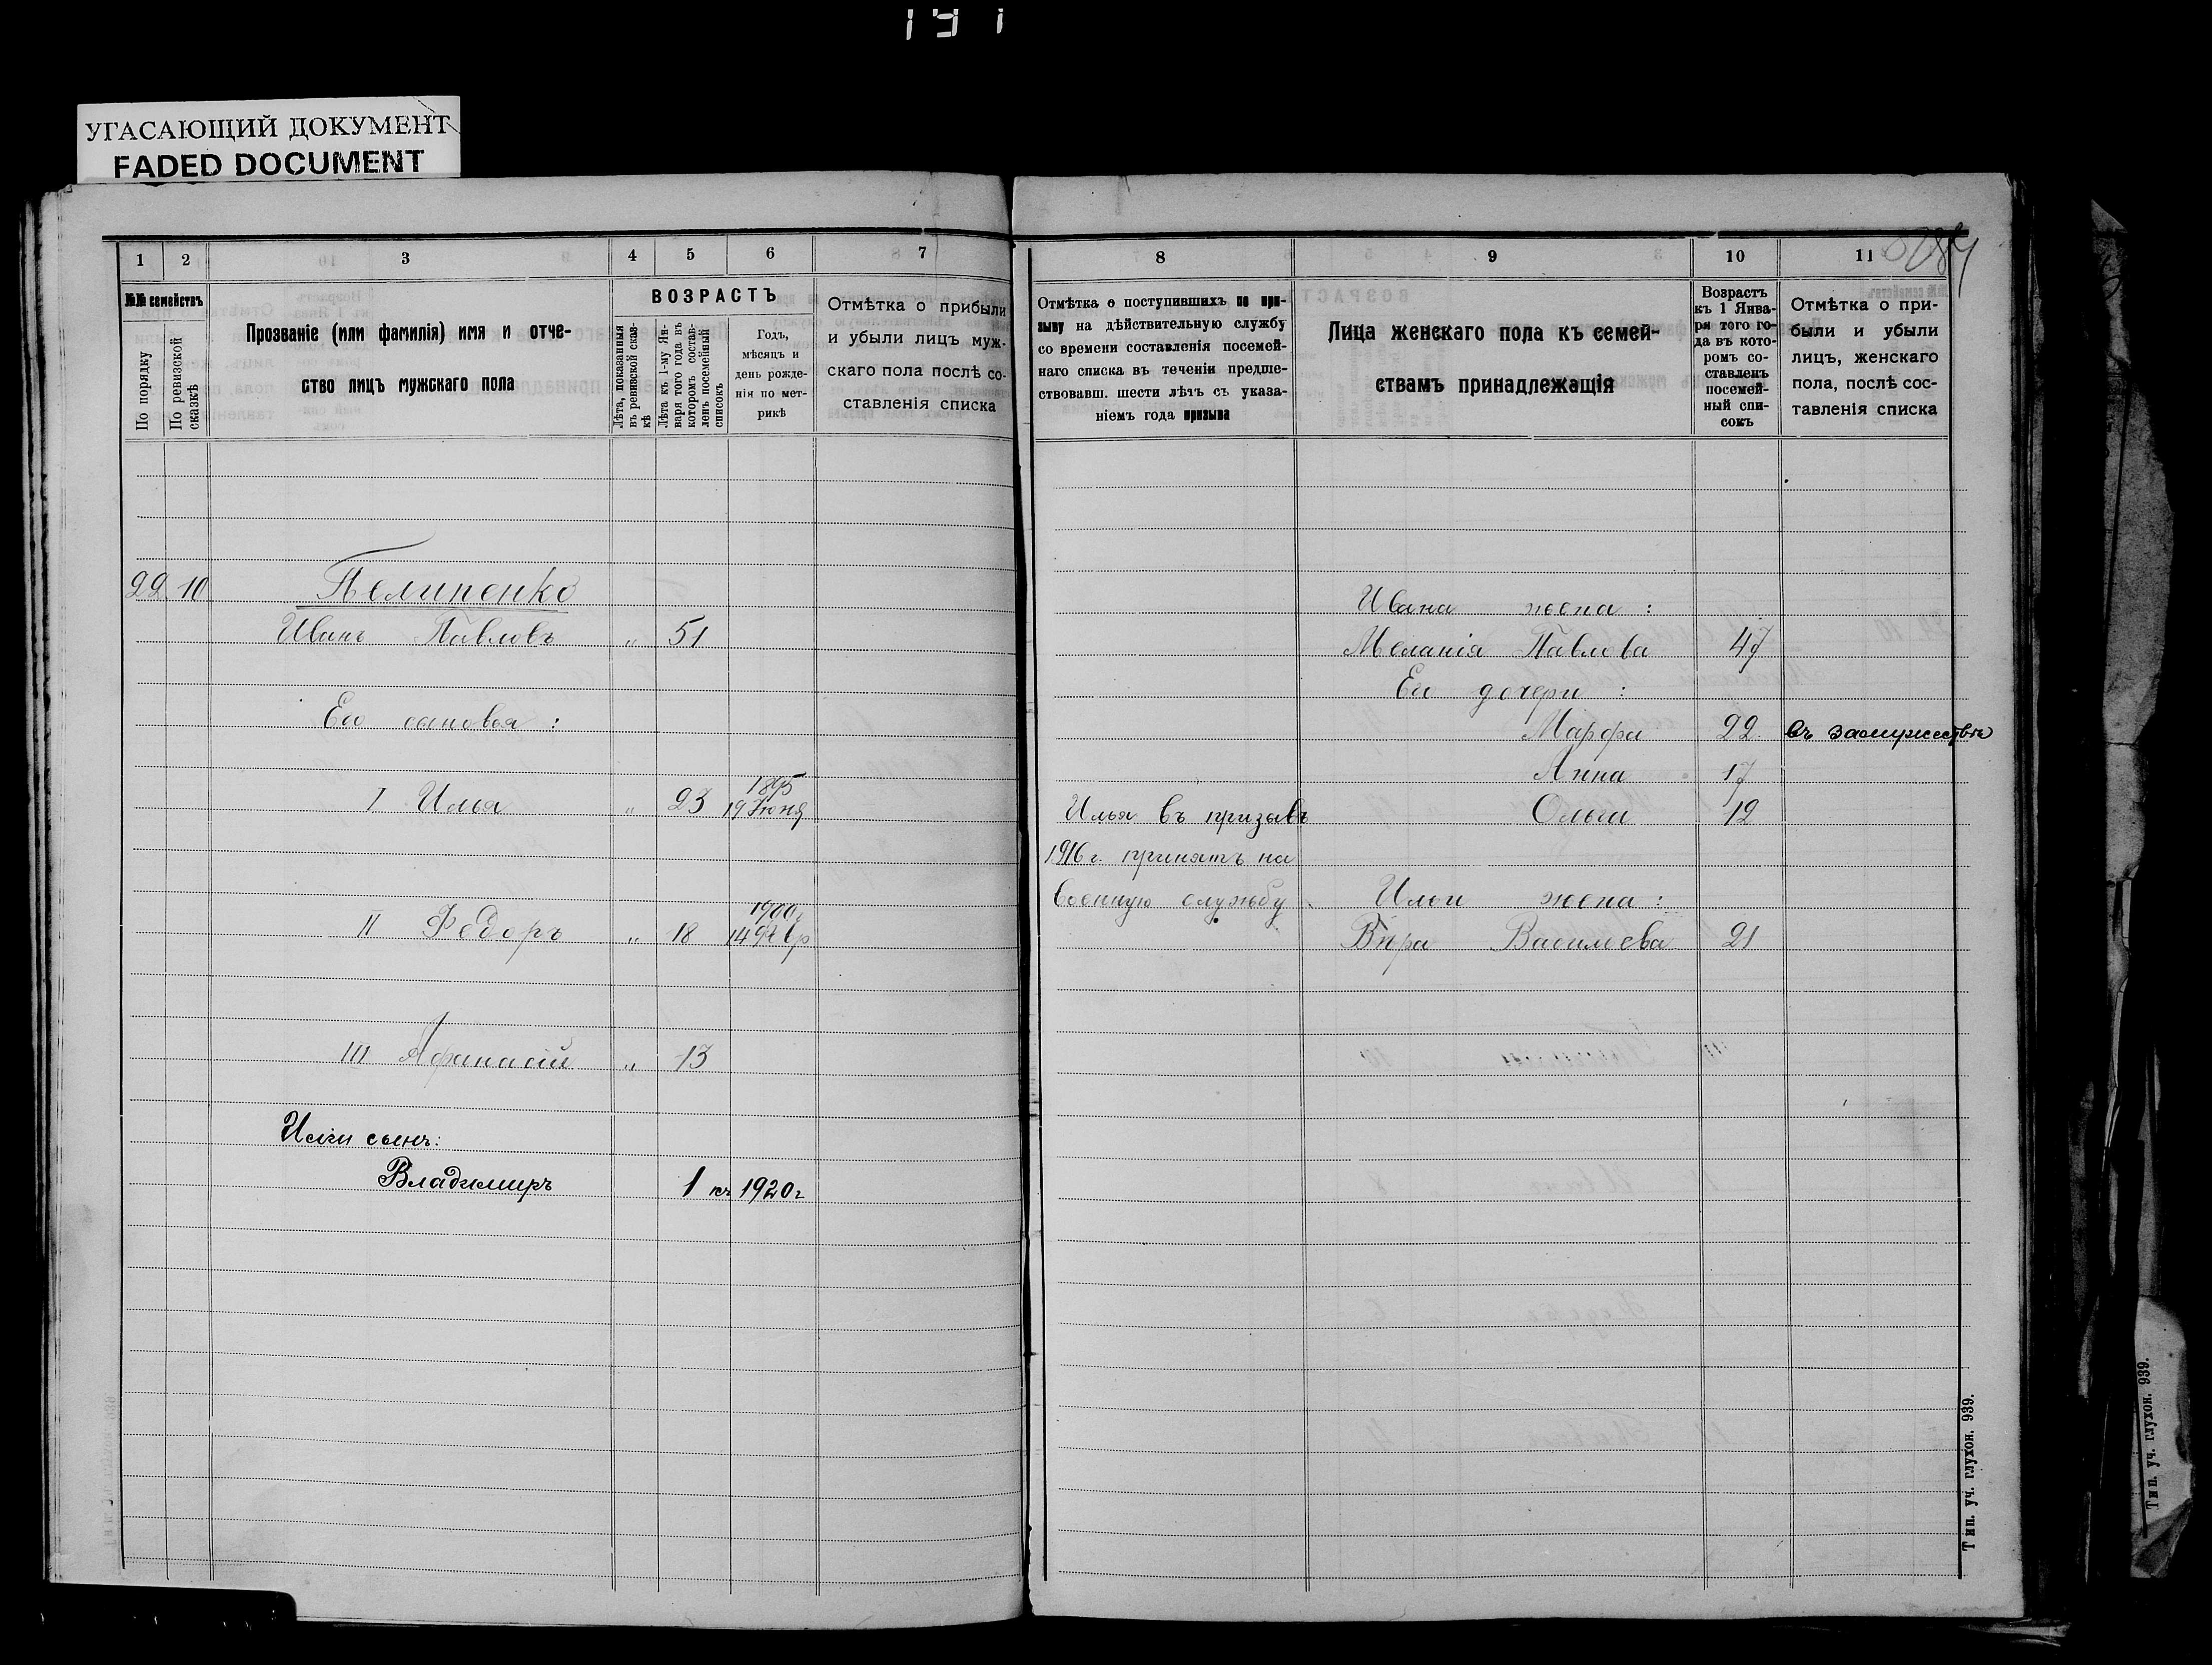 191
УГАСАЮЩИЙ ДОКУМЕНТ
FADED DOCUMENT
1 2 3 4 5 6 7
№№ семействъ
По порядку
По ревизской сказкѣ
Прозваніе (или фамилія) имя и отче-
ство лицъ мужскаго пола
ВОЗРАСТЪ
Лѣта, показанныя
въ ревизской сказ-
кѣ
Лѣта къ 1-му Ян-
варя того года въ
которомъ состав-
ленъ посемейный
списокъ
Годъ,
мѣсяцъ и
день рожде-
нія по мет-
рикѣ
Отмѣтка о прибыли
и убыли лицъ муж-
скаго пола послѣ со-
ставленія списка
22 10 Пелипенко
Иванъ Павловъ „ 51
Ео сыновья :
I Илья „ 23 1895
19 Іюня
II Федоръ „ 18 1900
14
III Афанасій „ 13
Ильи сынъ:
Владимиръ 1 къ 1920 г
8 9 10 11
Отмѣтка о поступившихъ по при-
зыву на дѣйствительную службу
со времени составленія посемей-
наго списка въ теченіи предше-
ствовавш. шести лѣтъ съ указа-
ніемъ года призыва
Лица женскаго пола къ семей-
ствамъ принадлежащія
Возрастъ
къ 1 Янва-
ря того го-
да въ кото-
ромъ со-
ставленъ
посемей-
ный спи-
сокъ
Отмѣтка о при-
были и убыли
лицъ, женскаго
пола, послѣ сос-
тавленія списка
Ивана жена :
Меланія Павлова 47
Ео дочери :
Марфа 22 въ замужествѣ
Анна 17
Илья въ призывъ Ольга 12
1916 г. принятъ на
военную службу Ильи жена :
Вѣра Васильева 21
Тип. уч. глухон. 939.
Тип. уч. глухон. 939.